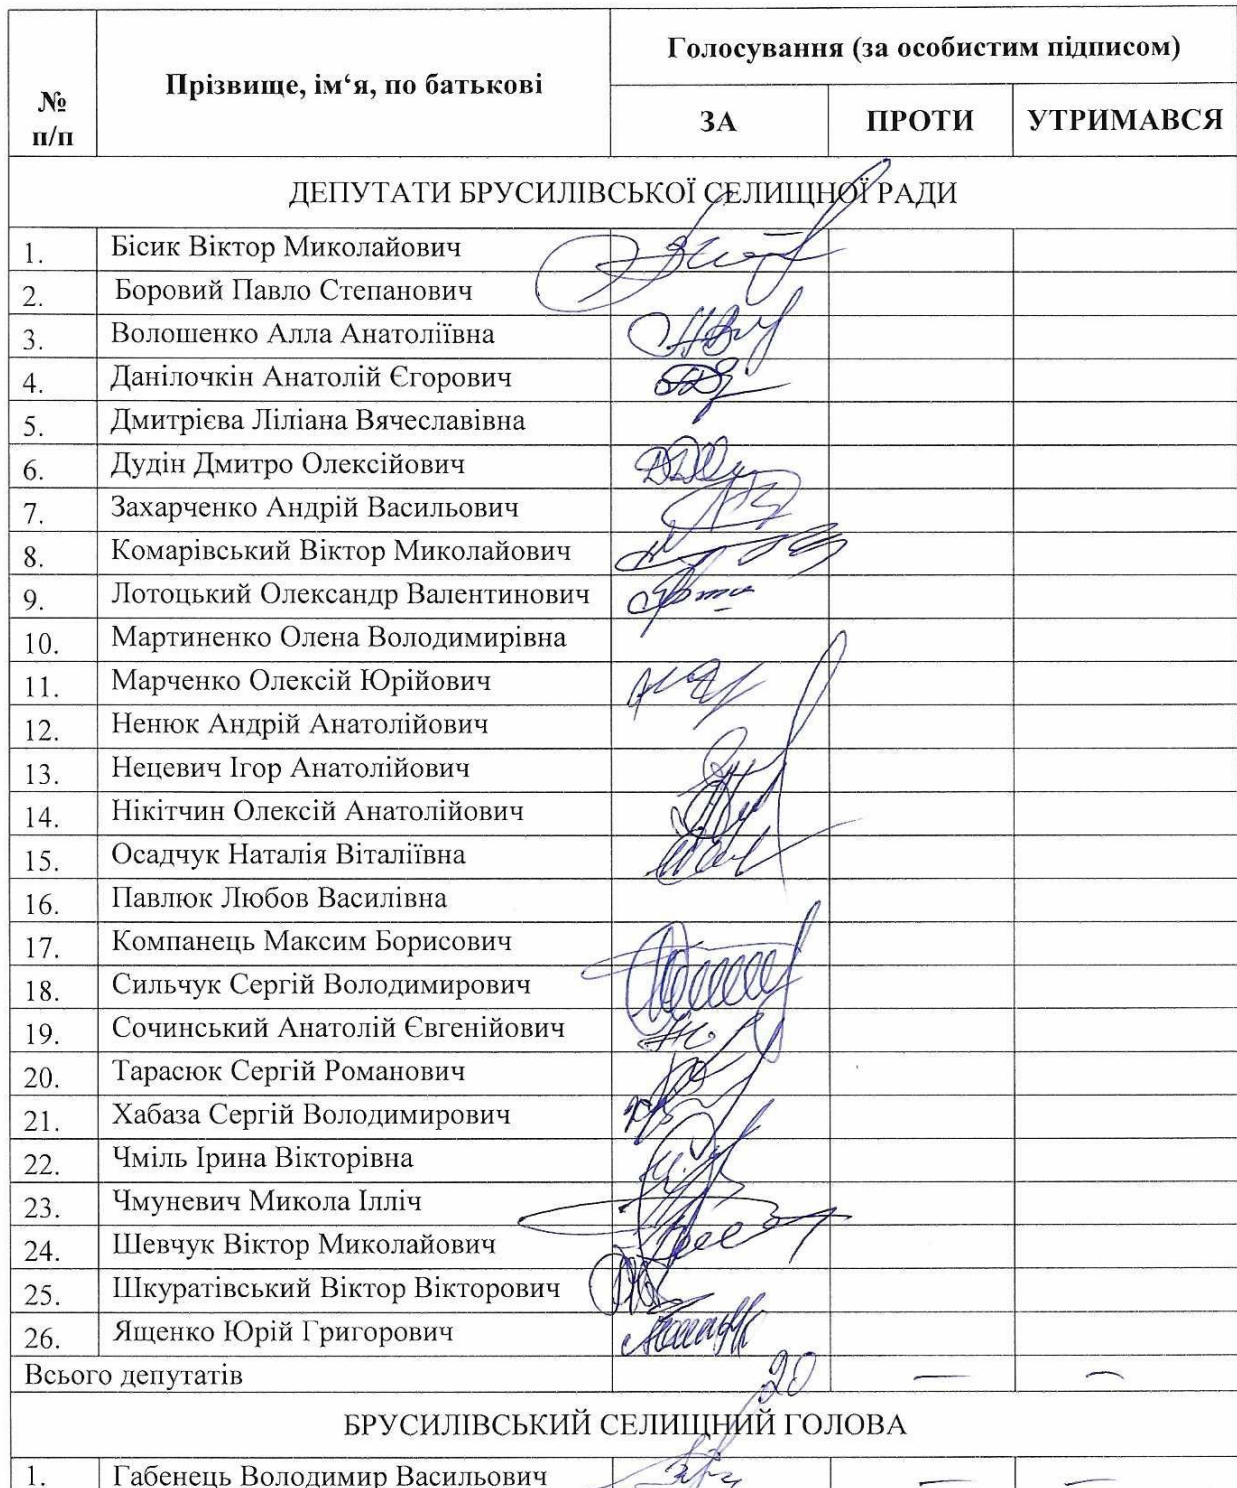 № п/п
Прізвище, ім‘я, по батькові
Голосування (за особистим підписом)
ЗА
ПРОТИ
УТРИМАВСЯ
ДЕПУТАТИ БРУСИЛІВСЬКОЇ СЕЛИЩНОЇ РАДИ
1. Бісик Віктор Миколайович
2. Боровий Павло Степанович
3. Волошенко Алла Анатоліївна
4. Данілочкін Анатолій Єгорович
5. Дмитрієва Ліліана Вячеславівна
6. Дудін Дмитро Олексійович
7. Захарченко Андрій Васильович
8. Комарівський Віктор Миколайович
9. Лотоцький Олександр Валентинович
10. Мартиненко Олена Володимирівна
11. Марченко Олексій Юрійович
12. Ненюк Андрій Анатолійович
13. Нецевич Ігор Анатолійович
14. Нікітчин Олексій Анатолійович
15. Осадчук Наталія Віталіївна
16. Павлюк Любов Василівна
17. Компанець Максим Борисович
18. Сильчук Сергій Володимирович
19. Сочинський Анатолій Євгенійович
20. Тарасюк Сергій Романович
21. Хабаза Сергій Володимирович
22. Чміль Ірина Вікторівна
23. Чмуневич Микола Ілліч
24. Шевчук Віктор Миколайович
25. Шкуратівський Віктор Вікторович
26. Ященко Юрій Григорович
Всього депутатів 20 — —
БРУСИЛІВСЬКИЙ СЕЛИЩНИЙ ГОЛОВА
1. Габенець Володимир Васильович — —